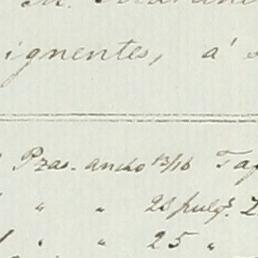 ignentes, á
Pzas. ancho 13/16
" " 28 pulgs.
" " 25 "